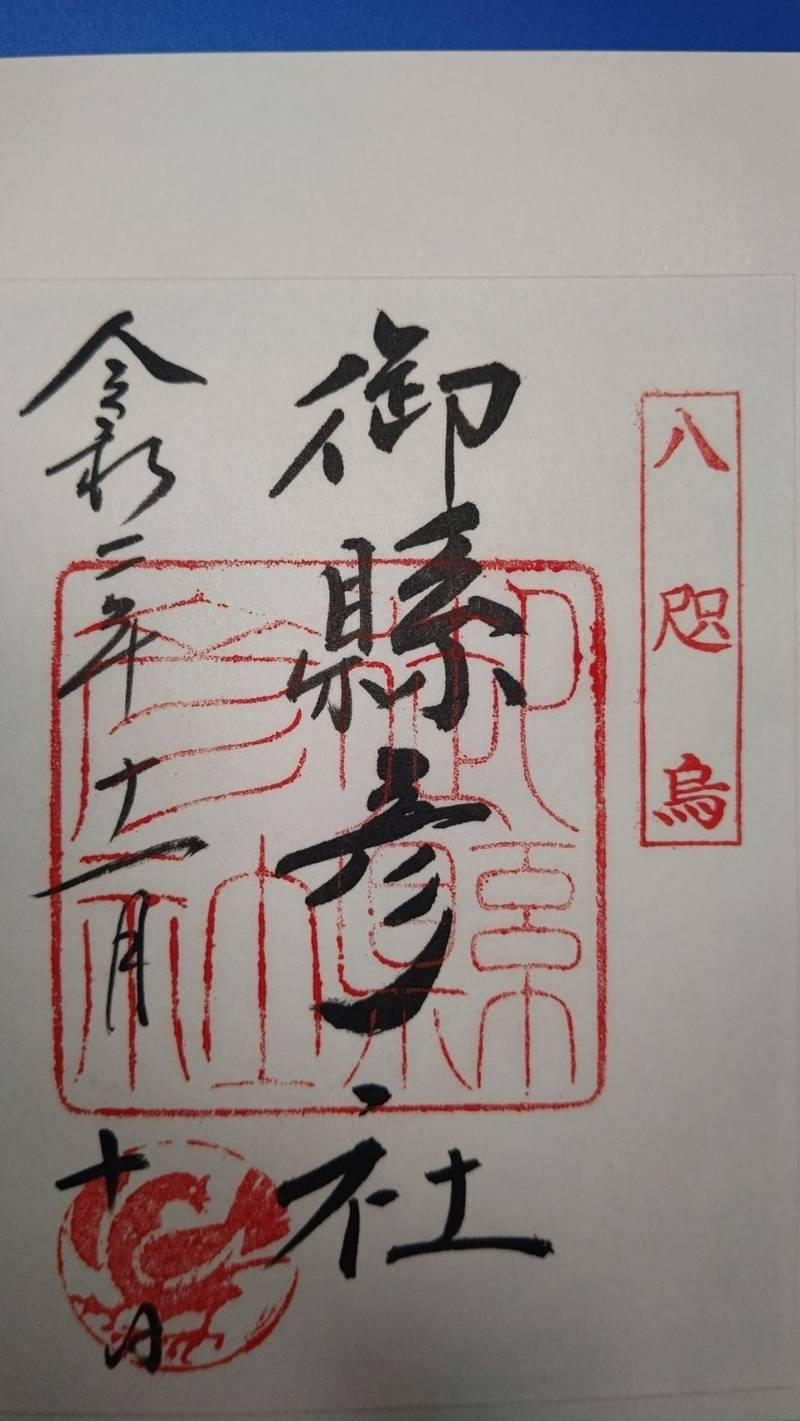 八咫烏
御縣彦社
令和二年十一月十日
御縣彦社